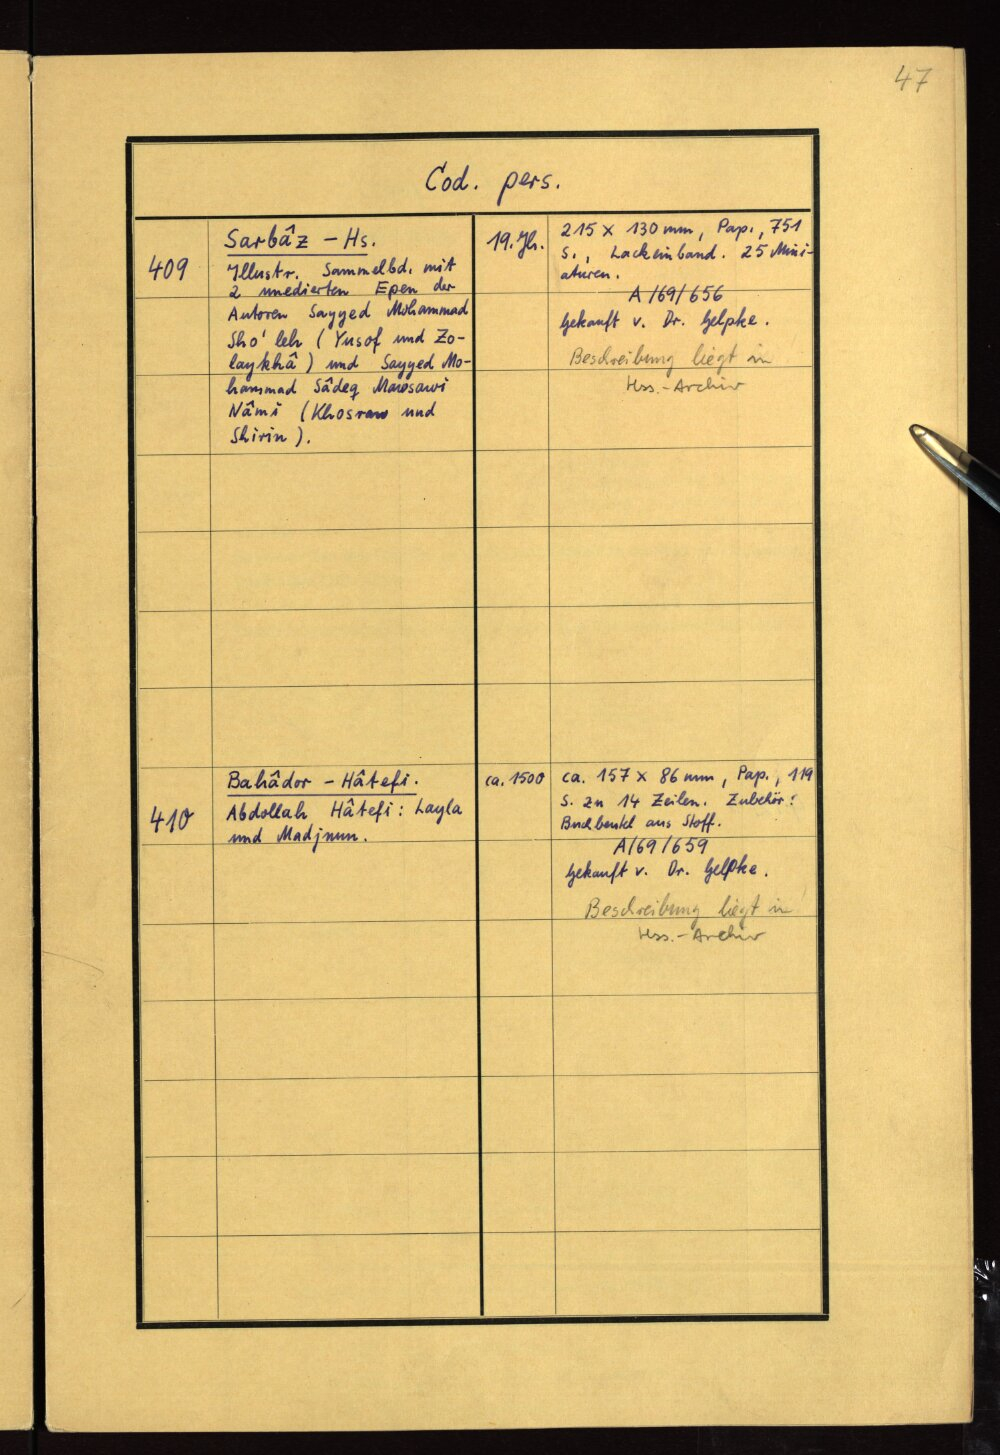 47
Cod. pers.
409
Sarbâz – Hs.
Illustr. Sammelbd. mit
2 unedierten Epen der
Autoren Sayyed Mohammad
Sho'leh (Yusof und Zo-
laykhâ) und Sayyed Mo-
hammad Sâdeq Mawsawi
Nâmi (Khosraw und
Shirin).
19. Jh.
215 × 130 mm, Pap., 751
S., Lackeinband. 25 Mini-
aturen.
A/69/656
Gekauft v. Dr. Gelpke.
Beschreibung liegt in
Hss.-Archiv
410
Bahâdor – Hâtefi.
Abdollah Hâtefi: Layla
und Madjnun.
ca. 1500
ca. 157 × 86 mm, Pap., 119
S. zu 14 Zeilen. Zubehör:
Buchbeutel aus Stoff.
A/69/659
Gekauft v. Dr. Gelpke.
Beschreibung liegt in
Hss.-Archiv